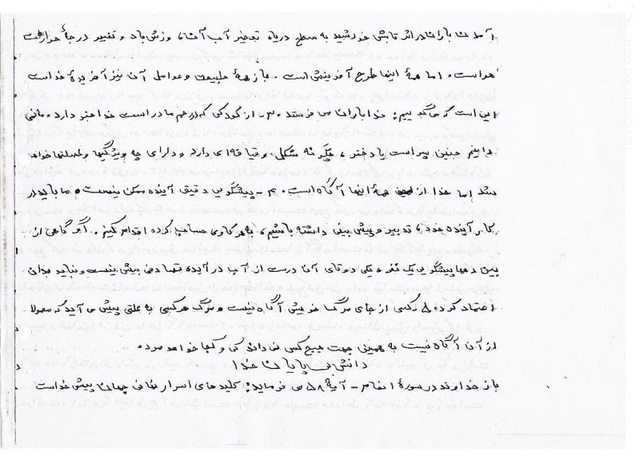 آمدن باران در اثر تابش خورشید به سطح دریا، تبخیر آب آنها، وزش باد و تغییر درجهٔ حرارت
هواست. اما همهٔ اینها طرح آفرینش است. باز همهٔ طبیعت و عوامل آن نیز آفریدهٔ خداست
این است که میگوییم: خدا باران می فرستد ۳- از کودکی که در رحم مادر است خدا خبر دارد. ما نمی
دانیم جنین پسر است یا دختر، چگونه شکل و قیافه‌ای دارد و دارای چه ویژگیها و خصلتها خواهد
شد اما خدا از همهٔ اینها آگاه است. ۴- پیشگویی دقیق آینده ممکن نیست و ما باید در
کار آینده خود، تدبیر و پیش بینی داشته باشیم، به هر کاری حساب کرده اقدام کنیم. اگر گاهی از
بین دهها پیشگویی یک نفر یکی دو تای آن درست از آب در آید تصادفی بیش نیست و نباید بدان
اعتماد کرد. ۵- کسی از جای مرگ خویش آگاه نیست و مرگ هر کسی به عللی پیش می آید که معمولا
از آن آگاه نیست به همین جهت هیچ کس نمی داند کی و کجا خواهد مرد.
دانش بی پایان خدا
باز خداوند در سورهٔ انعام - آیهٔ ۵۸ می فرماید: کلیدهای اسرار جهان پیش خداست